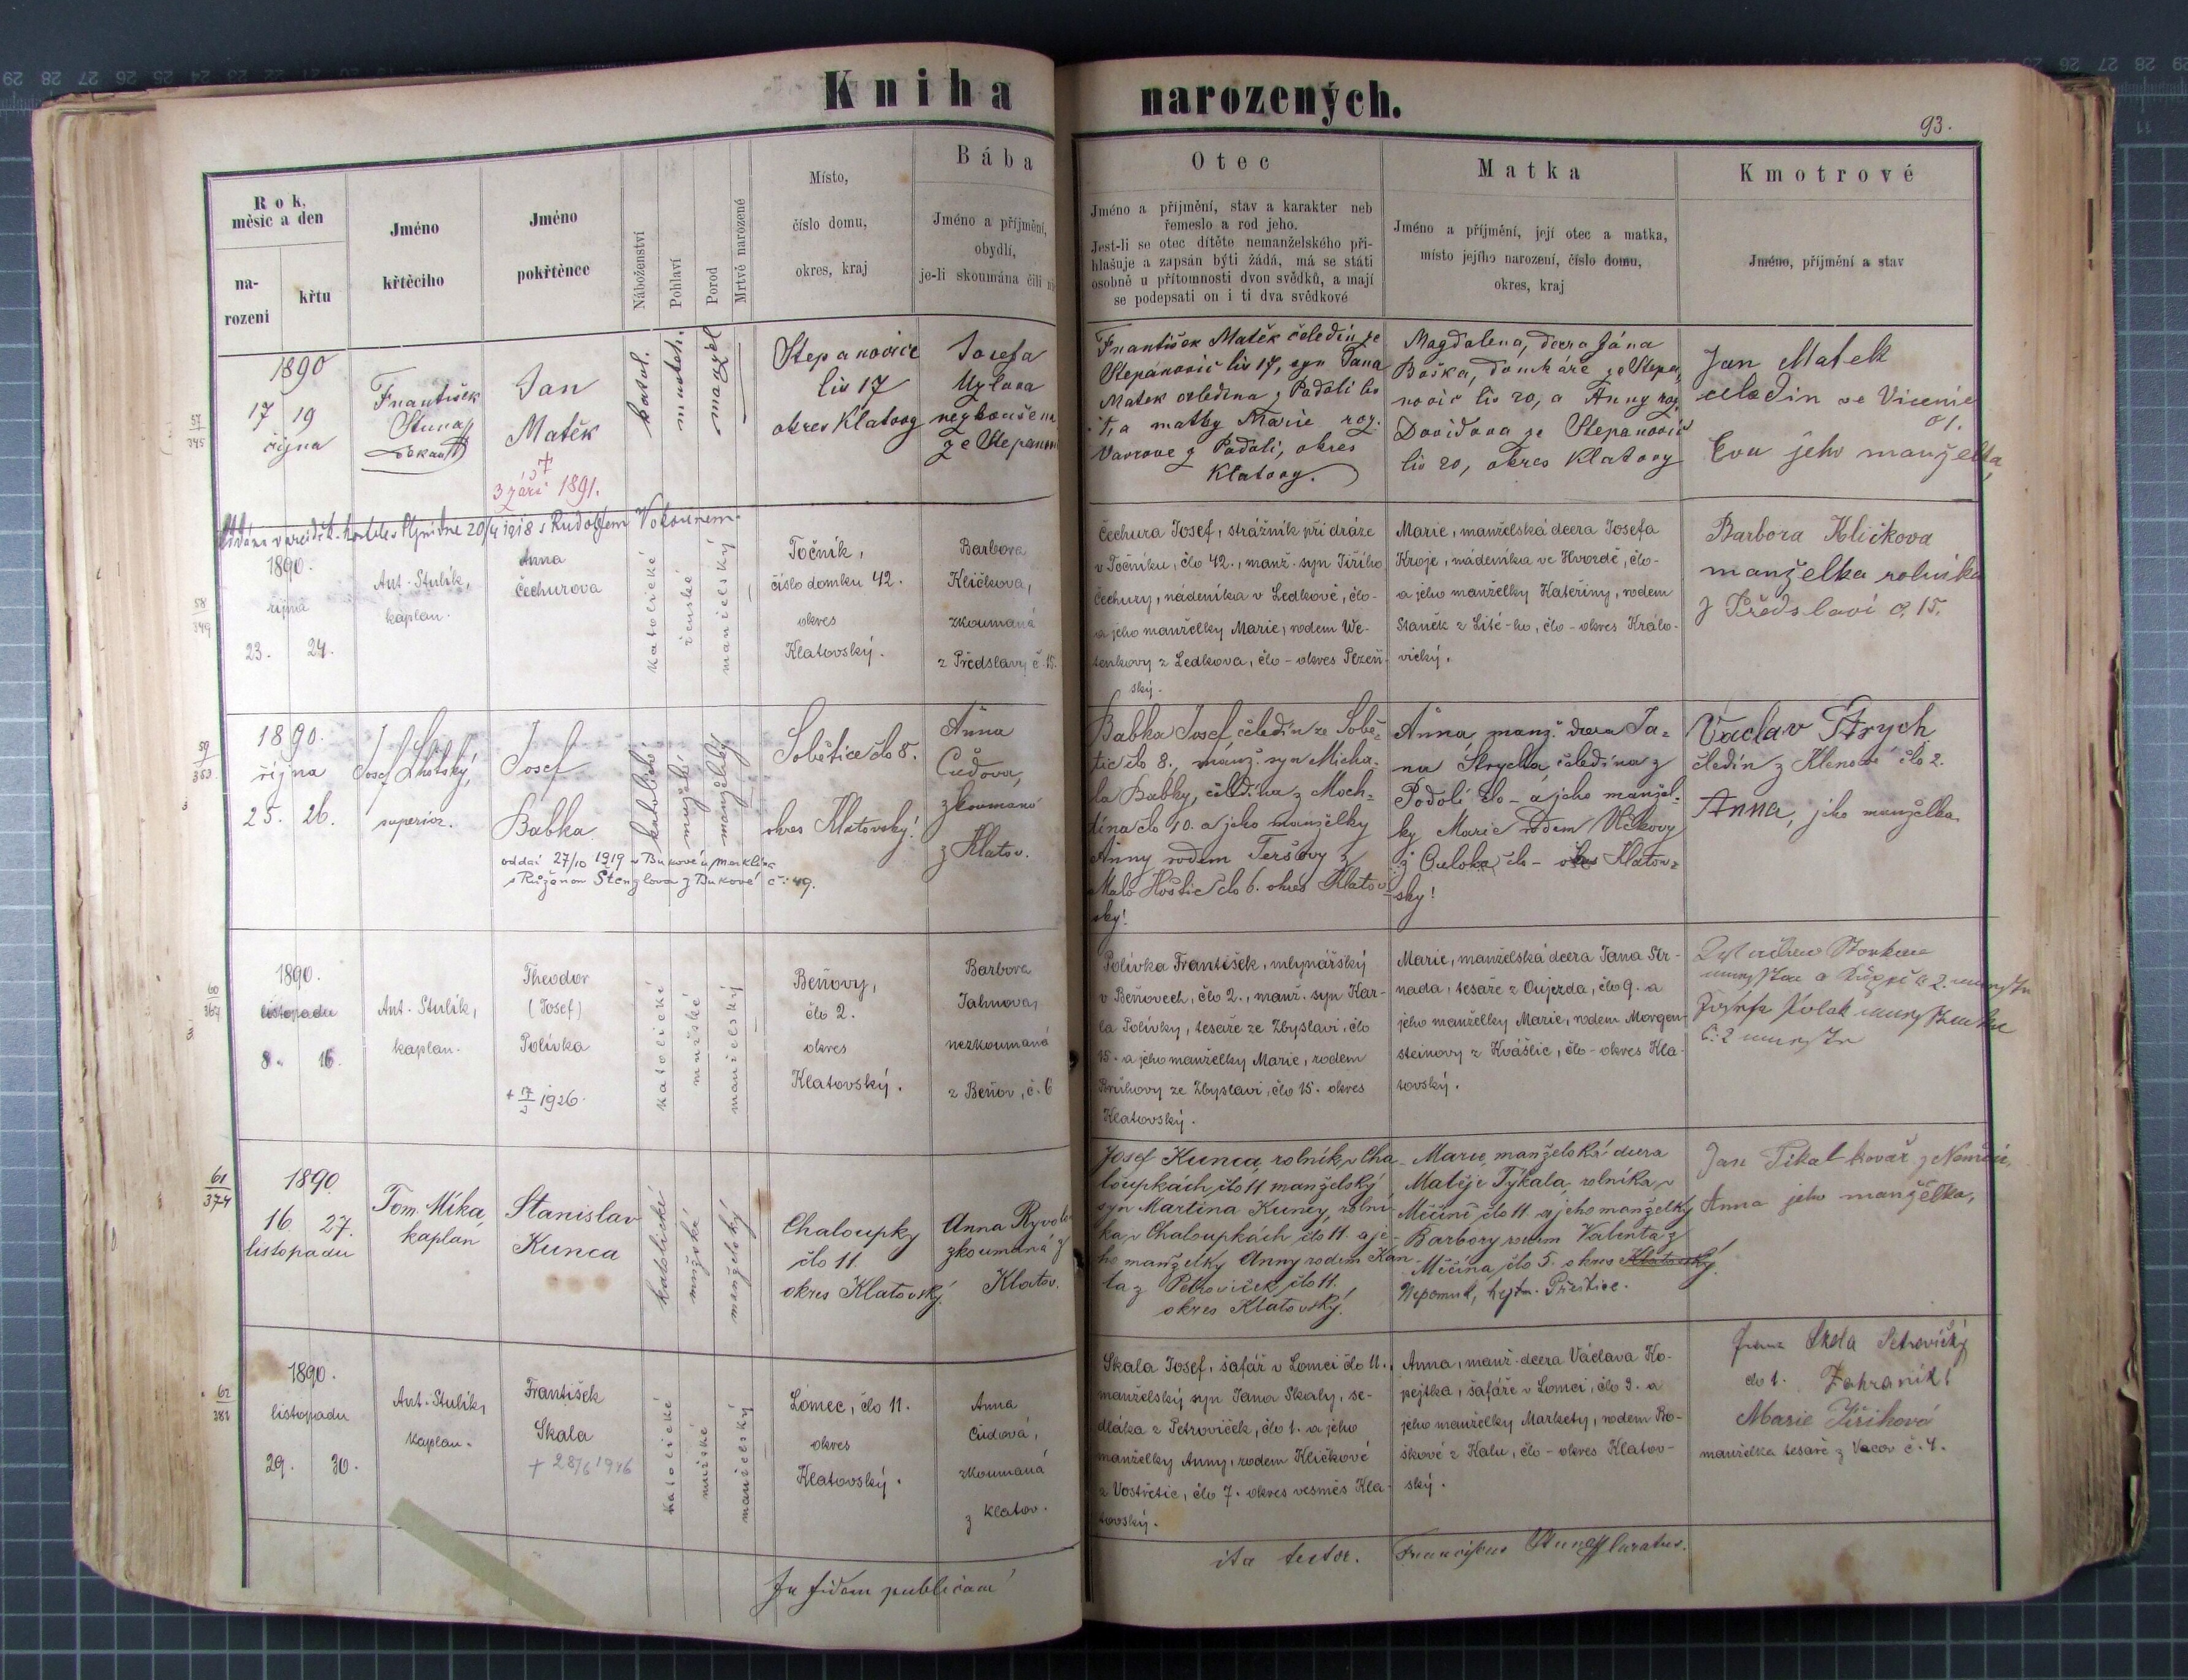 Kniha narozených.
93.
Rok, měsíc a den
narození
křtu
Jméno křtícího
Jméno pokřtěnce
Náboženství
Pohlaví
Porod
Mrtvě narozené
Místo,
číslo domu,
okres, kraj
Bába
Jméno a příjmění,
obydlí,
je-li skoumána čili
Otec
Jméno a příjmění, stav a karakter neb
řemeslo a rod jeho.
Jest-li se otec dítěte nemanželského při-
hlašuje a zapsán býti žádá, má se státi
osobně u přítomnosti dvou svědků, a mají
se podepsati on i ti dva svědkové
Matka
Jméno a příjmění, její otec a matka,
místo jejího narození, číslo domu,
okres, kraj
Kmotrové
Jméno, příjmění a stav
57
345
1890
17 19
října
František
Jan
Matěk
†
3 září 1891.
katol.
manžel
Štepanovice
čis 17
okres Klatovy
Josefa
František Matěk čeledín ze
Štepanovic čis 17, syn Jana
Matek čeledína z Podolí čis
a matky Marie roz.
Vavrove z Podolí, okres
Klatovy.
Magdalena, dcera Jána
Boška, domkáře ze Štepa-
novic čis 20, a Anny roz.
Davidova ze Štepanovic
čis 20, okres Klatovy
Jan Matek
čeledin ve Vicenic
Eva jeho manželka
58
349
20/4 1918 s Rudolfem Vokounem.
1890.
října
23. 24.
Ant. Stulík,
kaplan.
Anna
Čechurova
katolické
ženské
manželský
Točník,
číslo domku 42.
okres
Klatovský.
Barbora
Kličkova,
zkoumaná
z Předslavy č. 15.
Čechura Josef, strážník při dráze
v Točníku, člo 42., manž. syn Jiřího
Čechury, nádeníka v Ledkově, člo-
a jeho manželky Marie, rodem We-
tenkovy z Ledkova, člo - okres Plzeň-
ský.
Marie, manželská dcera Josefa
Kroje, nádeníka ve Hvozdě, člo-
a jeho manželky Kateřiny, rodem
Staněk z Lité-ho, člo - okres Králo-
vický.
Barbora Kličkova
manželka rolníka
z Předslaví č. 15.
59
353
1890.
října
25. 26.
Josef Lhotský,
superior.
Josef
Babka
oddal 27/10 1919 v Bukové u Merklína
s Růženou Štenglova z Bukové č: 49.
katolické
mužské
manželský
Sobětice čło 8.
okres Klatovský!
Anna
Čudova,
zkoumaná
z Klatov.
Babka Josef, čeledín ze Sobě-
tic čło 8., manž. syn Micha-
la Babky, čeledína z Moch-
tína čło 10. a jeho manželky
Anny rodem Teršovy z
Malo Hoštic čło 6. okres Klatov-
ský!
Anna, manž. dcera Ja-
na Strycha, čeledína z
Podolí čło - a jeho manžel-
ky Marie rodem Vlčkovy
čło - okres Klatov-
ský!
Vaclav Strych
čledín z Klenové čło 2.
Anna, jeho manželka
60
367
1890.
listopadu
8. 16.
Ant. Stulík,
kaplan.
Theodor
(Josef)
Polívka
1926.
katolické
mužské
manželský
Beňovy,
člo 2.
okres
Klatovský.
Barbora
Jahnova,
nezkoumaná
z Beňov, č. 6
Polívka František, mlynářský
v Beňovech, člo 2., manž. syn Kar-
la Polívky, tesaře ze Zbyslavi, člo
15. a jeho manželky Marie, rodem
Brůhovy ze Zbyslavi, člo 15. okres
Klatovský.
Marie, manželská dcera Jana Str-
nada, tesaře z Oujezda, člo 9. a
jeho manželky Marie, rodem Morgen-
steinovy z Kvášlic, člo - okres Kla-
tovský.
61
374
1890
16 27.
listopadu
Tom. Míka,
kaplan
Stanislav
Kunca
katolické
mužské
manželský
Chaloupky
čło 11.
okres Klatovský.
Anna Ryvola
zkoumaná z
Klatov.
Josef Kunca, rolník v Cha-
loupkách, čło 11 manželský
syn Martina Kuncy, rolní-
ka v Chaloupkách čło 11. a je-
ho manželky Anny rodem Kan-
ta z Petroviček, čło 11.
okres Klatovský!
Marie, manželská dcera
Matěje Týkala, rolníka v
Měčíně čło 11 a jeho manželky
Barbory rodem Valenta z
Měčína, čło 5. okres Klatovský.
Nepomuk, hejtm. Přeštice.
Jan Tikal kovář z
Anna jeho manželka,
62
381
1890.
listopadu
29. 30.
Ant. Stulík,
kaplan.
František
Skala
† 28/6 1946
katolické
mužské
manželský
Lomec, člo 11.
okres
Klatovský.
Anna
Čudová,
zkoumaná
z Klatov.
Skala Josef, šafář v Lomci člo 11.,
manželský syn Jana Skaly, se-
dláka z Petroviček, člo 1. a jeho
manželky Anny, rodem Kličkové
z Vostřetic, člo 7. okres vesměs Kla-
tovský.
Anna, manž. dcera Václava Ko-
pejtka, šafáře v Lomci, člo 9. a
jeho manželky Markety, rodem Bo-
škové z Kalu, člo - okres Klatov-
ský.
Skala Petrovičky
člo 1. Zahraník!
Marie Jiřikova
manželka tesaře z Vacov č. 4.
In fidem publicam
ita testor.
Franciscus